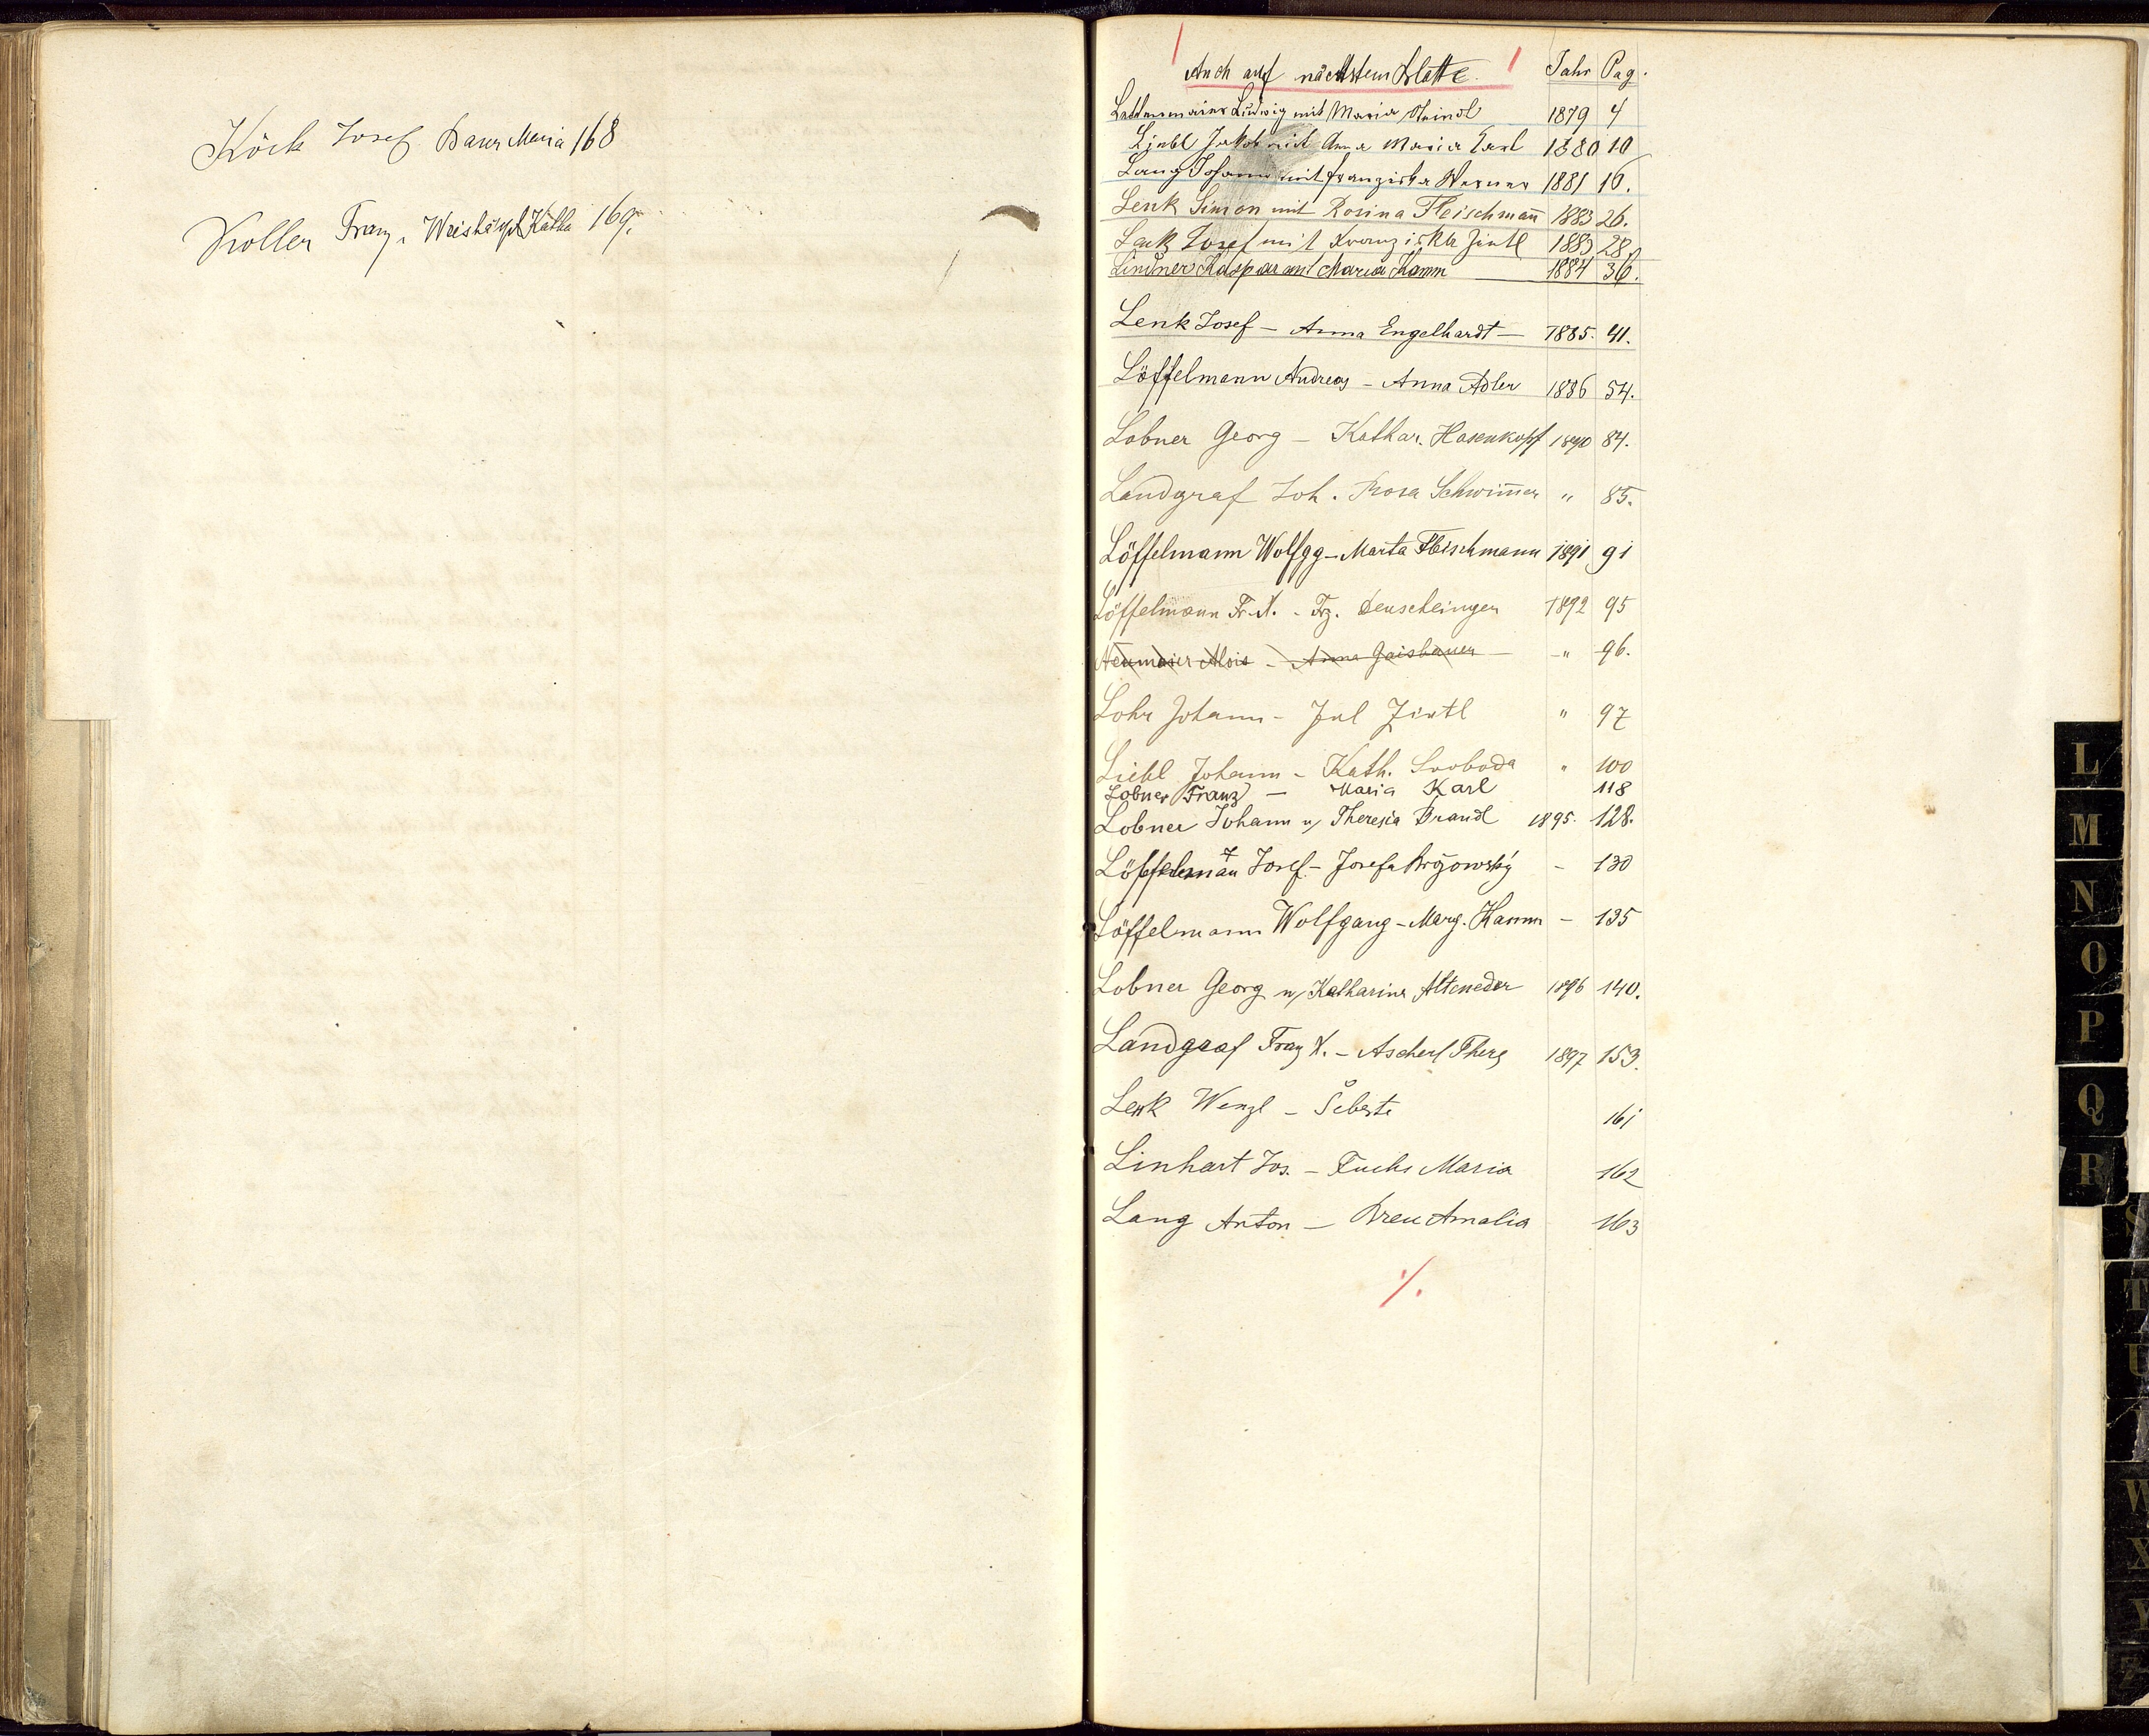 Köck Josef Bauer Maria 168
Koller Franz, Weishäupl Kathe 169.
Auch auf nächstem Blatte. Jahr Pag.
Ludwig mit Maria 1879 4
Liebl Jakob mit Anna Maria 1880 10
Lang Johann mit Franziska Werner 1881 16.
Lenk Simon mit Rosina Fleischmann̄ 1883 26.
Josef mit Franziska Zintl 1883 28.
Lindner Kaspar mit Maria Hamm 1884 36.
Lenk Josef – Anna Engelhardt – 1885. 41.
Löffelmann Andreas – Anna Adler 1886 54.
Lobner Georg – Kathar. Hasenkopf 1890 84.
Landgraf Joh. Rosa Schwim̄er " 85.
Löffelmann Wolfgg – Marta Fleischmann 1891 91
Löffelmann Fr. X. - Frz. 1892 95
Neumaier Alois - Anna Gaisbauer – -" 96.
Lohr Johann - Jul Zintl " 97
Liebl Johann – Kath. Svoboda " 100
Lobner Franz – Maria Karl 118
Lobner Johann u, Theresia Brandl 1895. 128.
Josef – Josefa – 130
Löffelmann Wolfgang – Marg. Hamm – 135
Lobner Georg u, Katharina Alteneder 1896 140.
Landgraf Franz X. – Ascherl Theres 1897 153.
Lenk Wenzl – 161
Linhart Jos. – Fuchs Maria 162
Lang Anton – Breu Amalia 163
/.
L
M
N
O
P
Q
R
S
T
U
W
X
Y
Z